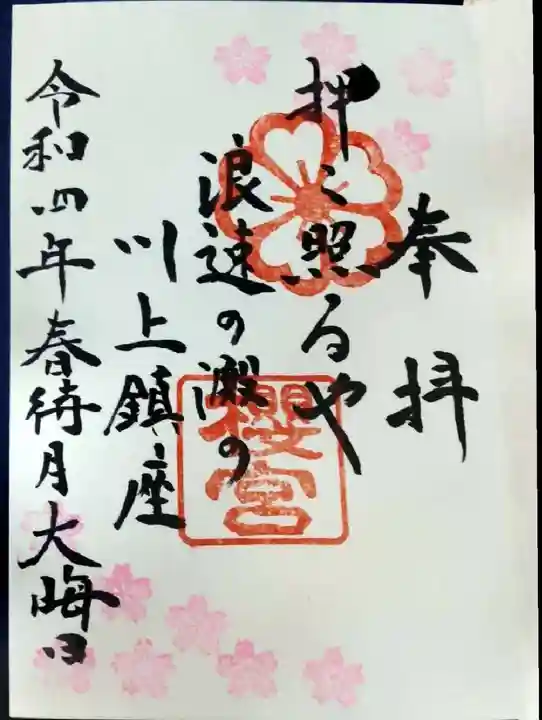 奉拝
押し照るや
浪速の澱の
川上鎮座
令和四年春待月大晦日
櫻宮